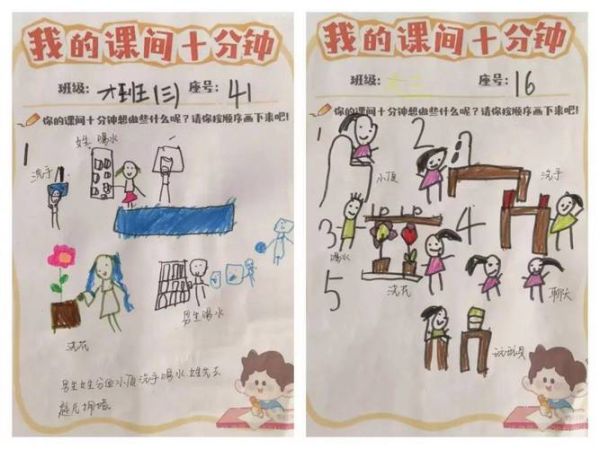 我的课间十分钟
班级: 大班(三) 座号: 41
你的课间十分钟想做些什么呢？请你按顺序画下来吧!
女生 喝水
1
洗手
浇花
男生喝水
男生女生分 小便 洗手喝水. 女生先去
我的课间十分钟
班级: 座号: 16
你的课间十分钟想做些什么呢？请你按顺序画下来吧!
1 2
小便 洗手
3 4
喝水
5
浇花 聊天
玩玩具